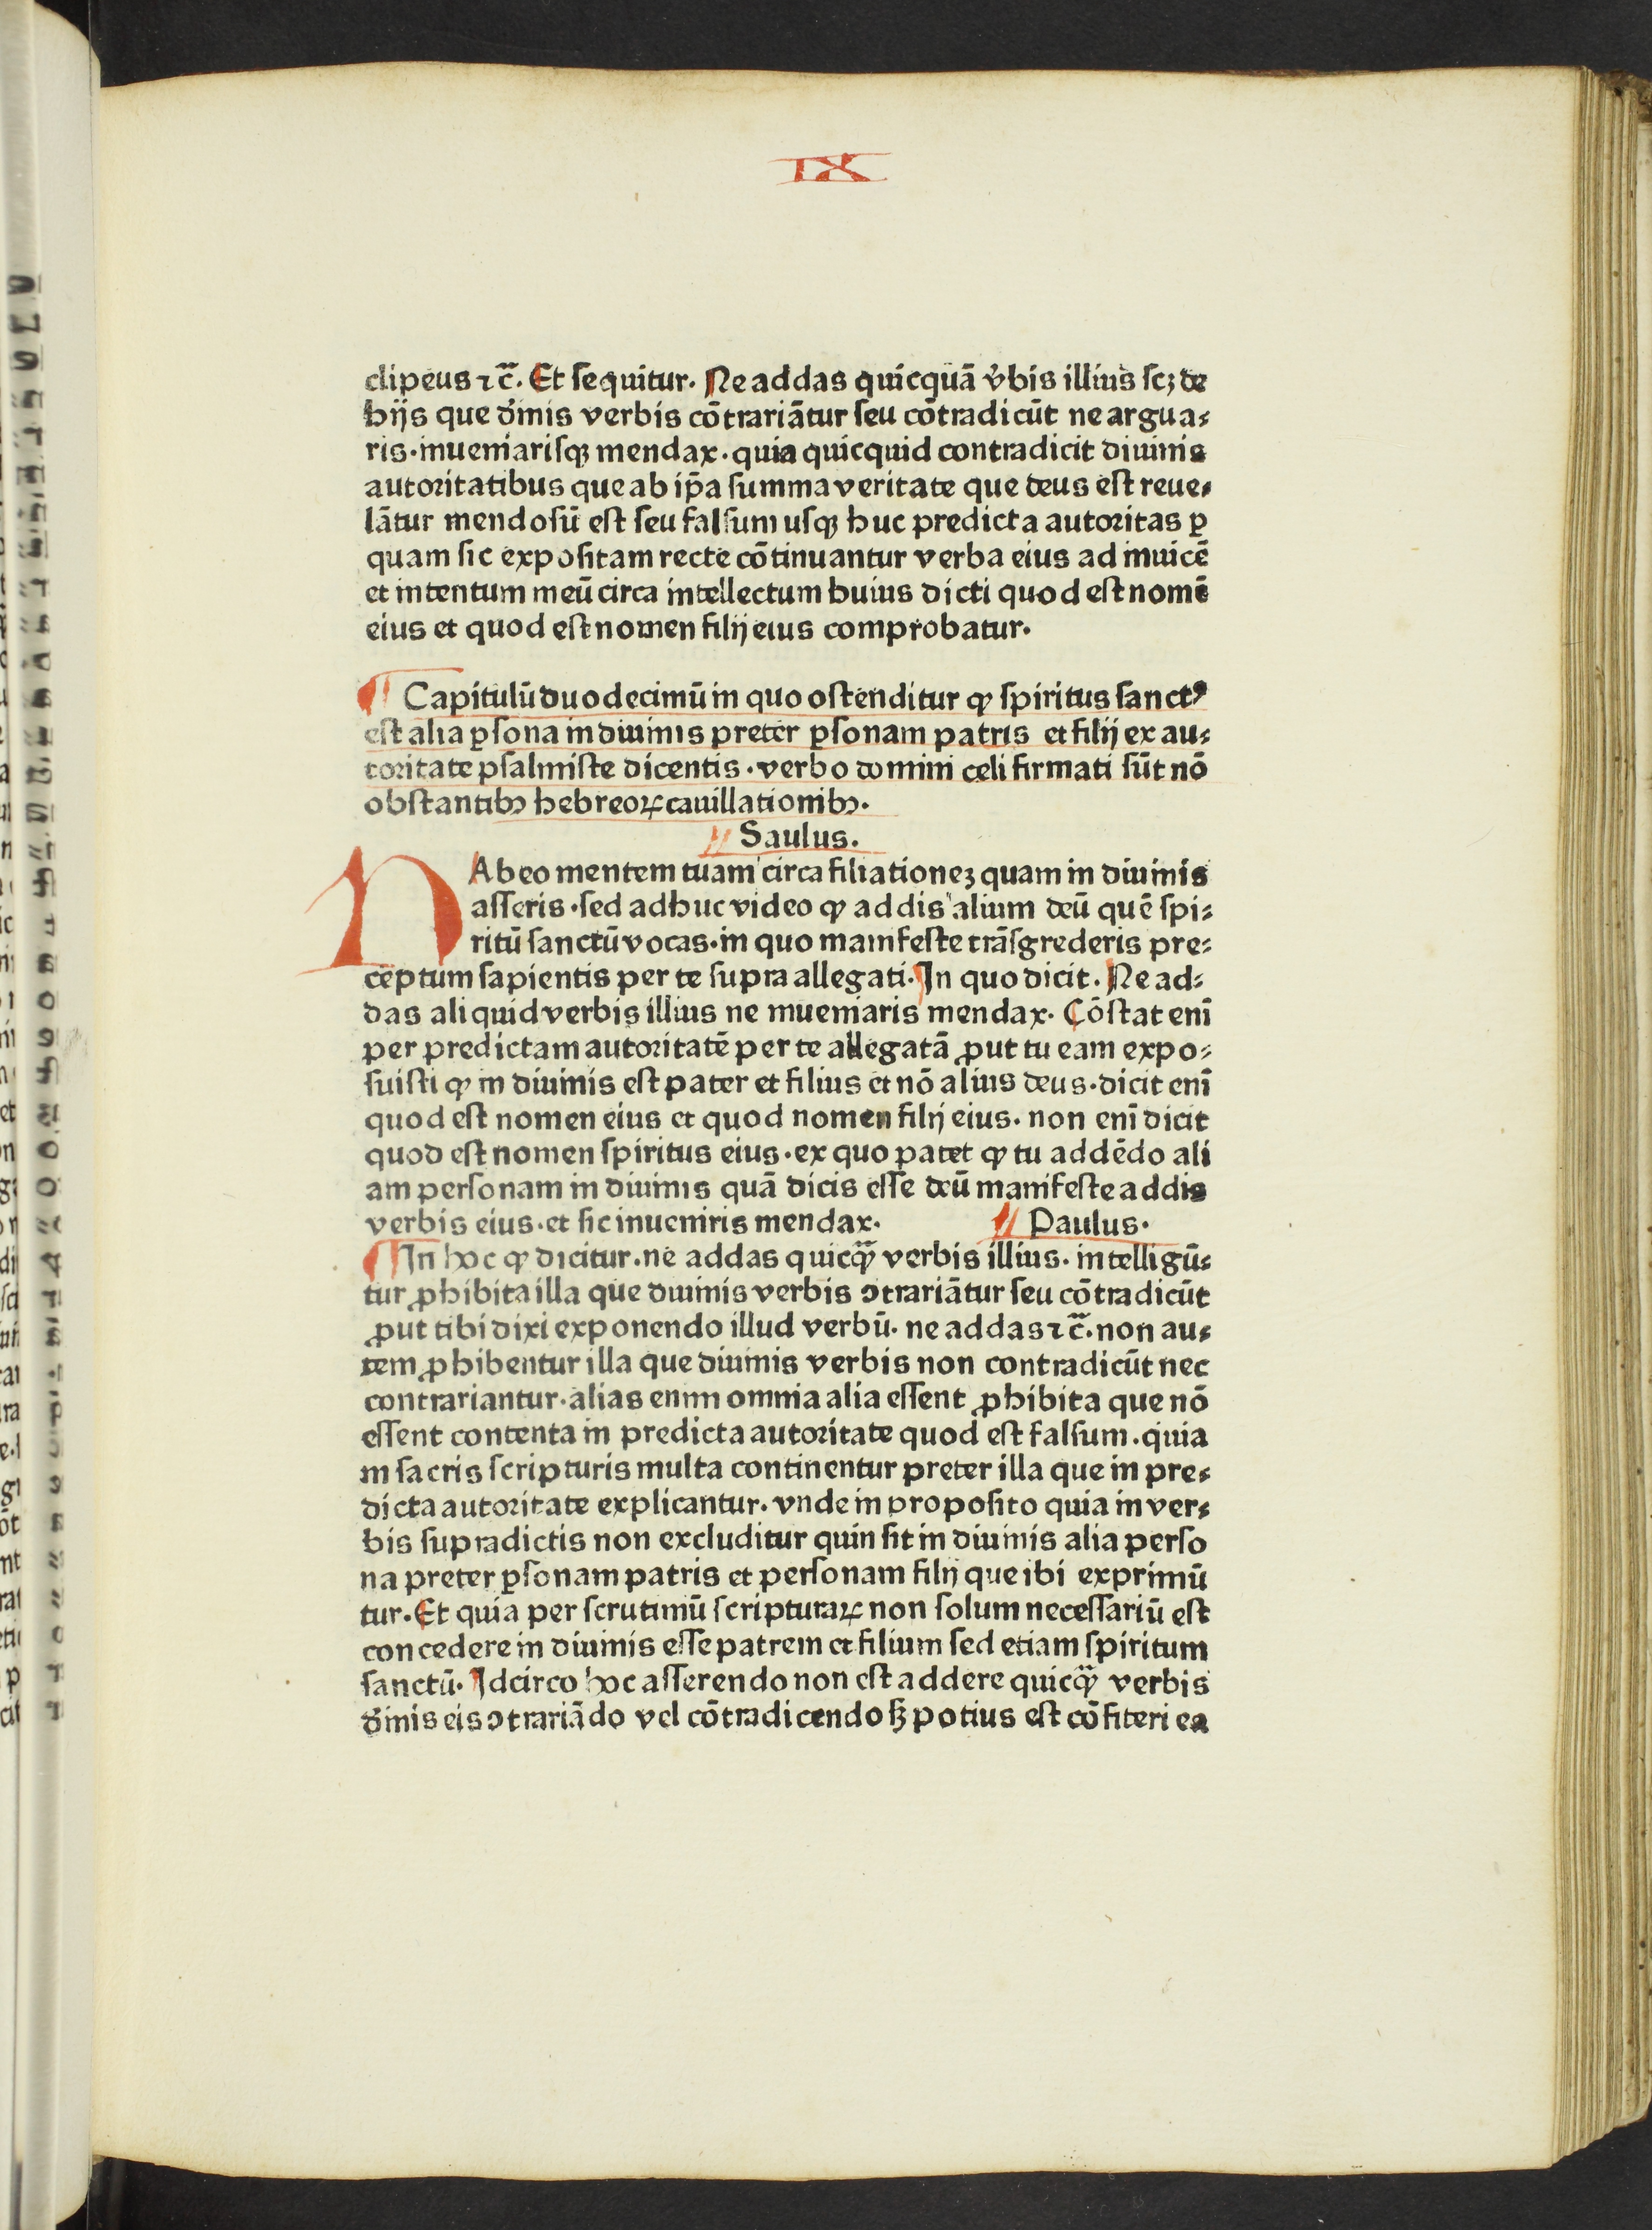 IX
clipeus ⁊c̃. Et sequitur. Ne addas quicquā v̓bis illius scꝫ de
hijs que d̓inis verbis cōtrariātur seu cōtradicūt ne argua⸗
ris. inueniarisqꝫ mendax. quia quicquid contradicit diuinis
autoritatibus que ab ip̄a summa veritate que deus est reue⸗
lātur mendosū est seu falsum usqꝫ huc predicta autoritas ꝑ
quam sic expositam recte cōtinuantur verba eius ad inuicē
et intentum meū circa intellectum huius dicti quod est nomē
eius et quod est nomen filij eius comprobatur.
¶ Capitulū duodecimū in quo ostenditur ꝙ spiritus sanctꝰ
est alia ꝑsona in diuinis preter ꝑsonam patris et filij ex au⸗
toritate psalmiste dicentis. verbo domini celi firmati sūt nō
obstantibꝫ hebreoꝝ cauillationibꝫ.
Saulus.
HAbeo mentem tuam circa filiationeꝫ quam in diuinis
asseris. sed adhuc video ꝙ addis alium deū quē spi⸗
ritū sanctū vocas. in quo manifeste trāsgrederis pre⸗
ceptum sapientis per te supra allegati. In quo dicit. Ne ad⸗
das aliquid verbis illius ne inueniaris mendax. Cōstat enī
per predictam autoritatē per te allegatā ꝓut tu eam expo⸗
suisti ꝙ in diuinis est pater et filius et nō alius deus. dicit enī
quod est nomen eius et quod nomen filij eius. non enī dicit
quod est nomen spiritus eius. ex quo patet ꝙ tu addēdo ali
am personam in diuinis quā dicis esse deū manifeste addis
verbis eius. et sic inueniris mendax. Paulus.
¶ In hoc ꝙ dicitur. ne addas quicꝙ̃ verbis illius. intelligū⸗
tur ꝓhibita illa que diuinis verbis ↄtrariātur seu cōtradicūt
ꝓut tibi dixi exponendo illud verbū. ne addas ⁊c̃. non au⸗
tem ꝓhibentur illa que diuinis verbis non contradicūt nec
contrariantur. alias enim omnia alia essent ꝓhibita que nō
essent contenta in predicta autoritate quod est falsum. quia
in sacris scripturis multa continentur preter illa que in pre⸗
dicta autoritate explicantur. vnde in proposito quia in ver⸗
bis supradictis non excluditur quin sit in diuinis alia perso
na preter ꝑsonam patris et personam filij que ibi exprimū
tur. Et quia per scrutiniū scripturaꝝ non solum necessariū est
concedere in diuinis esse patrem et filium sed etiam spiritum
sanctū. Idcirco hoc asserendo non est addere quicꝙ̃ verbis
d̓inis eis ↄtrariādo vel cōtradicendo sꝫ potius est cōfiteri ea